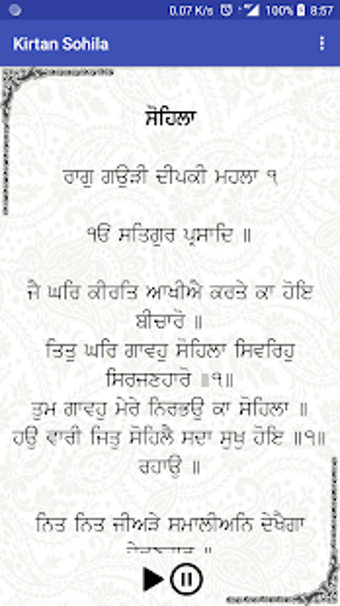 0.07 K/s 100% 8:57
Kirtan Sohila
ਸੋਹਿਲਾ
ਰਾਗੁ ਗਉੜੀ ਦੀਪਕੀ ਮਹਲਾ ੧
੧ੳੁਂ ਸਤਿਗੁਰ ਪ੍ਰਸਾਦਿ ॥
ਜੈ ਘਰਿ ਕੀਰਤਿ ਆਖੀਐ ਕਰਤੇ ਕਾ ਹੋਇ
ਬੀਚਾਰੋ ॥
ਤਿਤੁ ਘਰਿ ਗਾਵਹੁ ਸੋਹਿਲਾ ਸਿਵਰਿਹੁ
ਸਿਰਜਣਹਾਰੋ ॥੧॥
ਤੁਮ ਗਾਵਹੁ ਮੇਰੇ ਨਿਰਭਉ ਕਾ ਸੋਹਿਲਾ ॥
ਹਉ ਵਾਰੀ ਜਿਤੁ ਸੋਹਿਲੈ ਸਦਾ ਸੁਖੁ ਹੋਇ ॥੧॥
ਰਹਾਉ ॥
ਨਿਤ ਨਿਤ ਜੀਅੜੇ ਸਮਾਲੀਅਨਿ ਦੇਖੈਗਾ